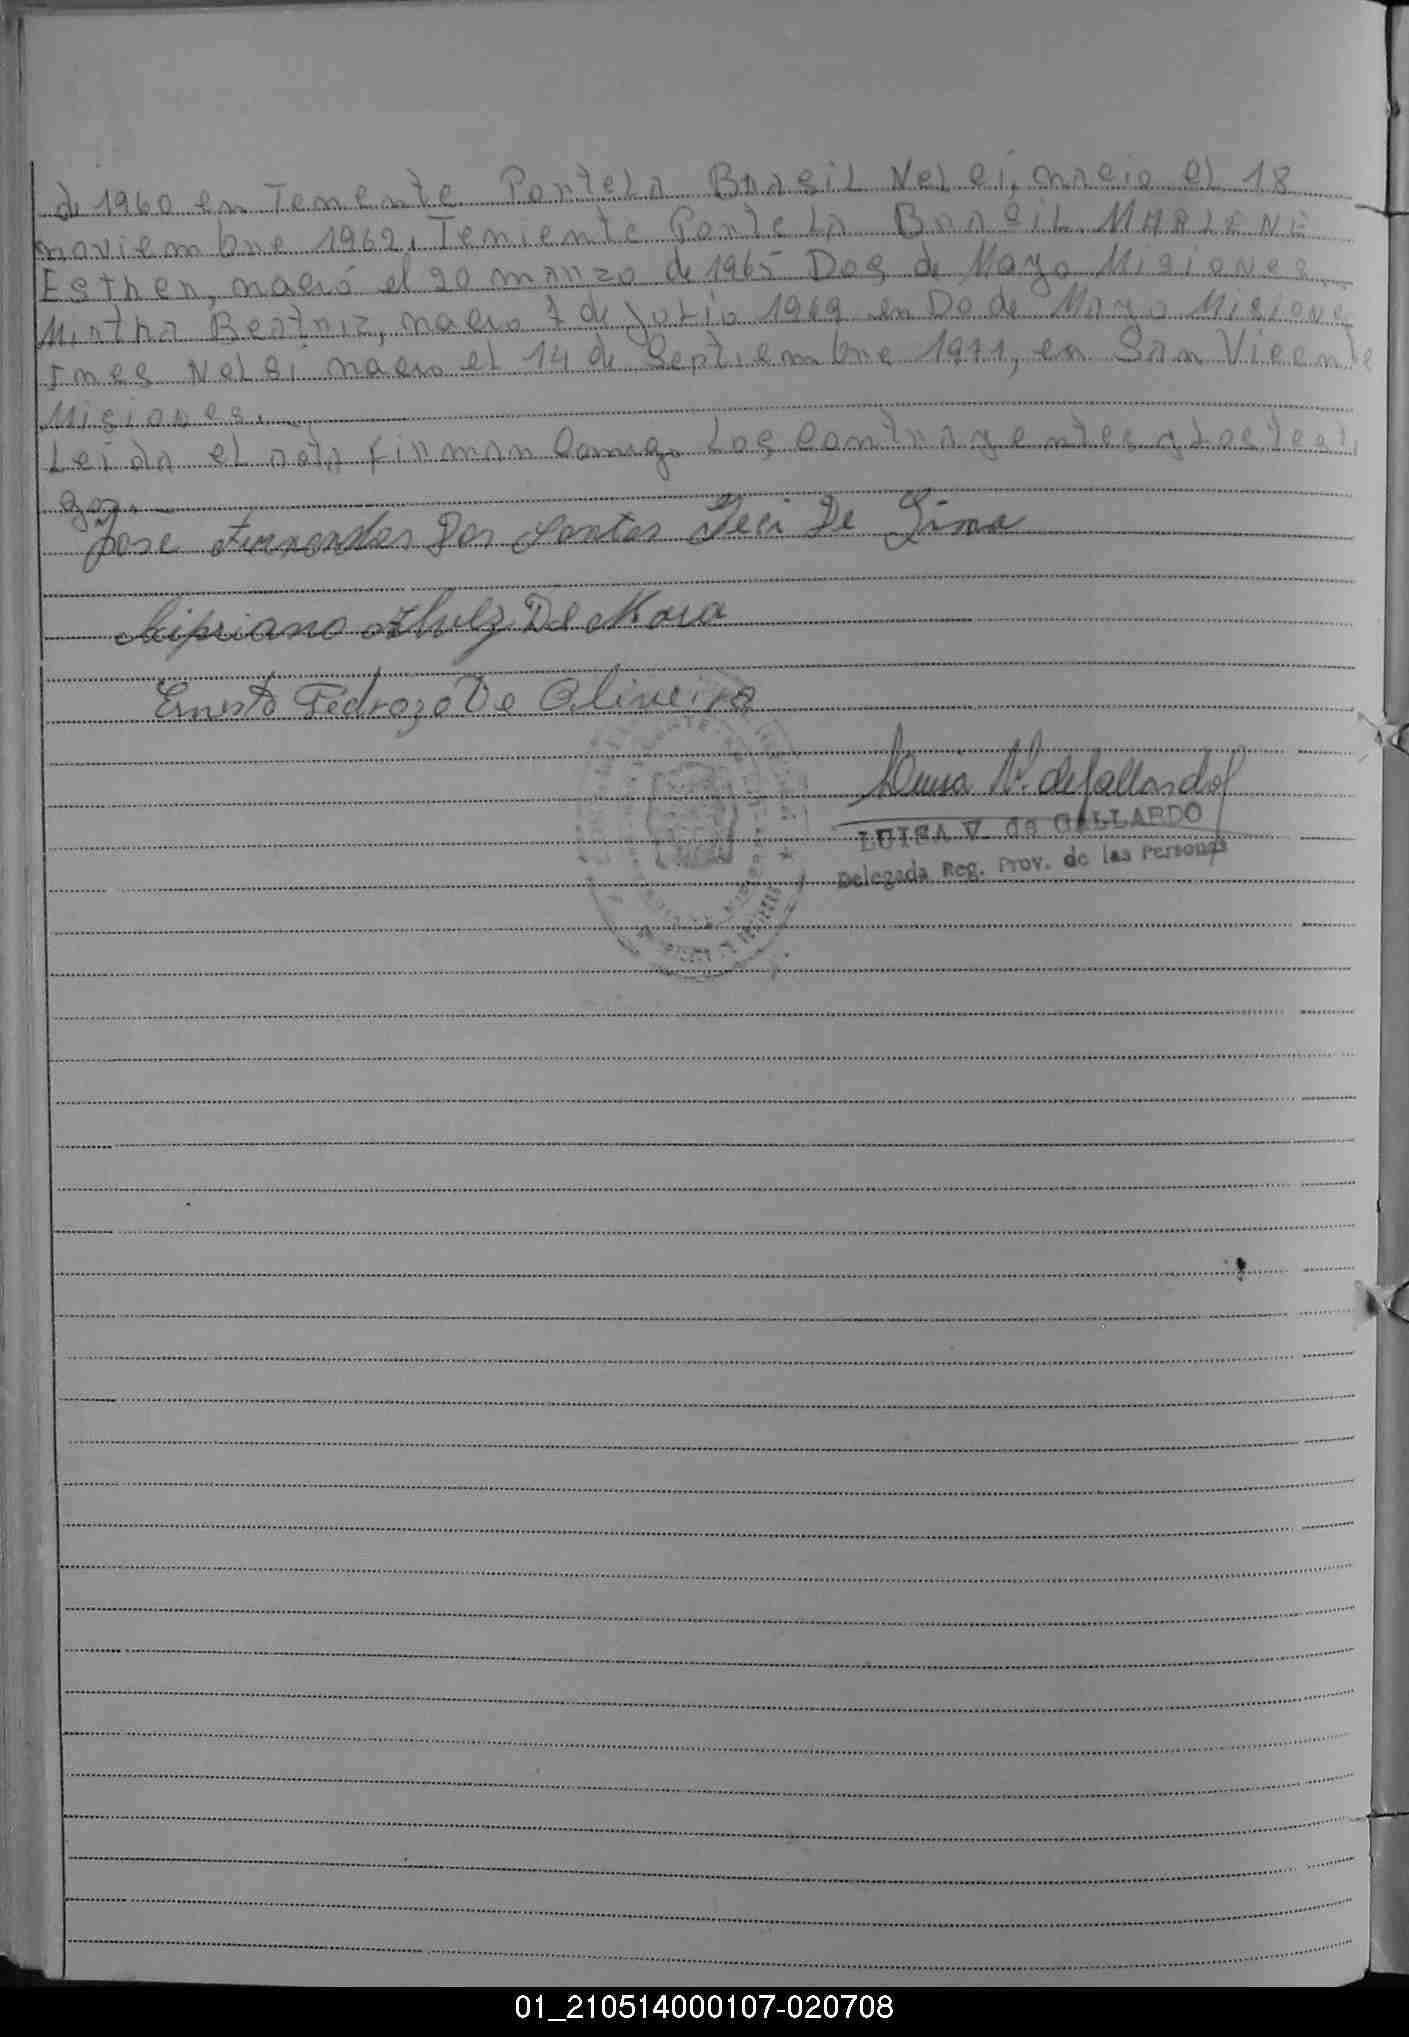 de 1960 en Tenente Portela Brasil Nelci, nacio el 18
noviembre 1962, Teniente Portela Brasil MARLENE
Esther, nació el 20 marzo de 1965 Dos de Mayo Misiones
Mirtha Beatriz, nacio 7 de Julio 1969 en Do de Mayo Misiones
Ines Nelsi nacio el 14 de Septiembre 1971, en San Vicente
Misiones.
Leida el acta firman Comigo Los Contrayentes y Los testi
gos.
Jose Fernandes Dos Santos Jeci De Lima
Sipriano De Mora
Ernesto Pedrozo De Oliveira
Luisa V. de Gallardo
LUISA V. de GALLARDO
Delegada Reg. Prov. de las Personas
01_210514000107-020708